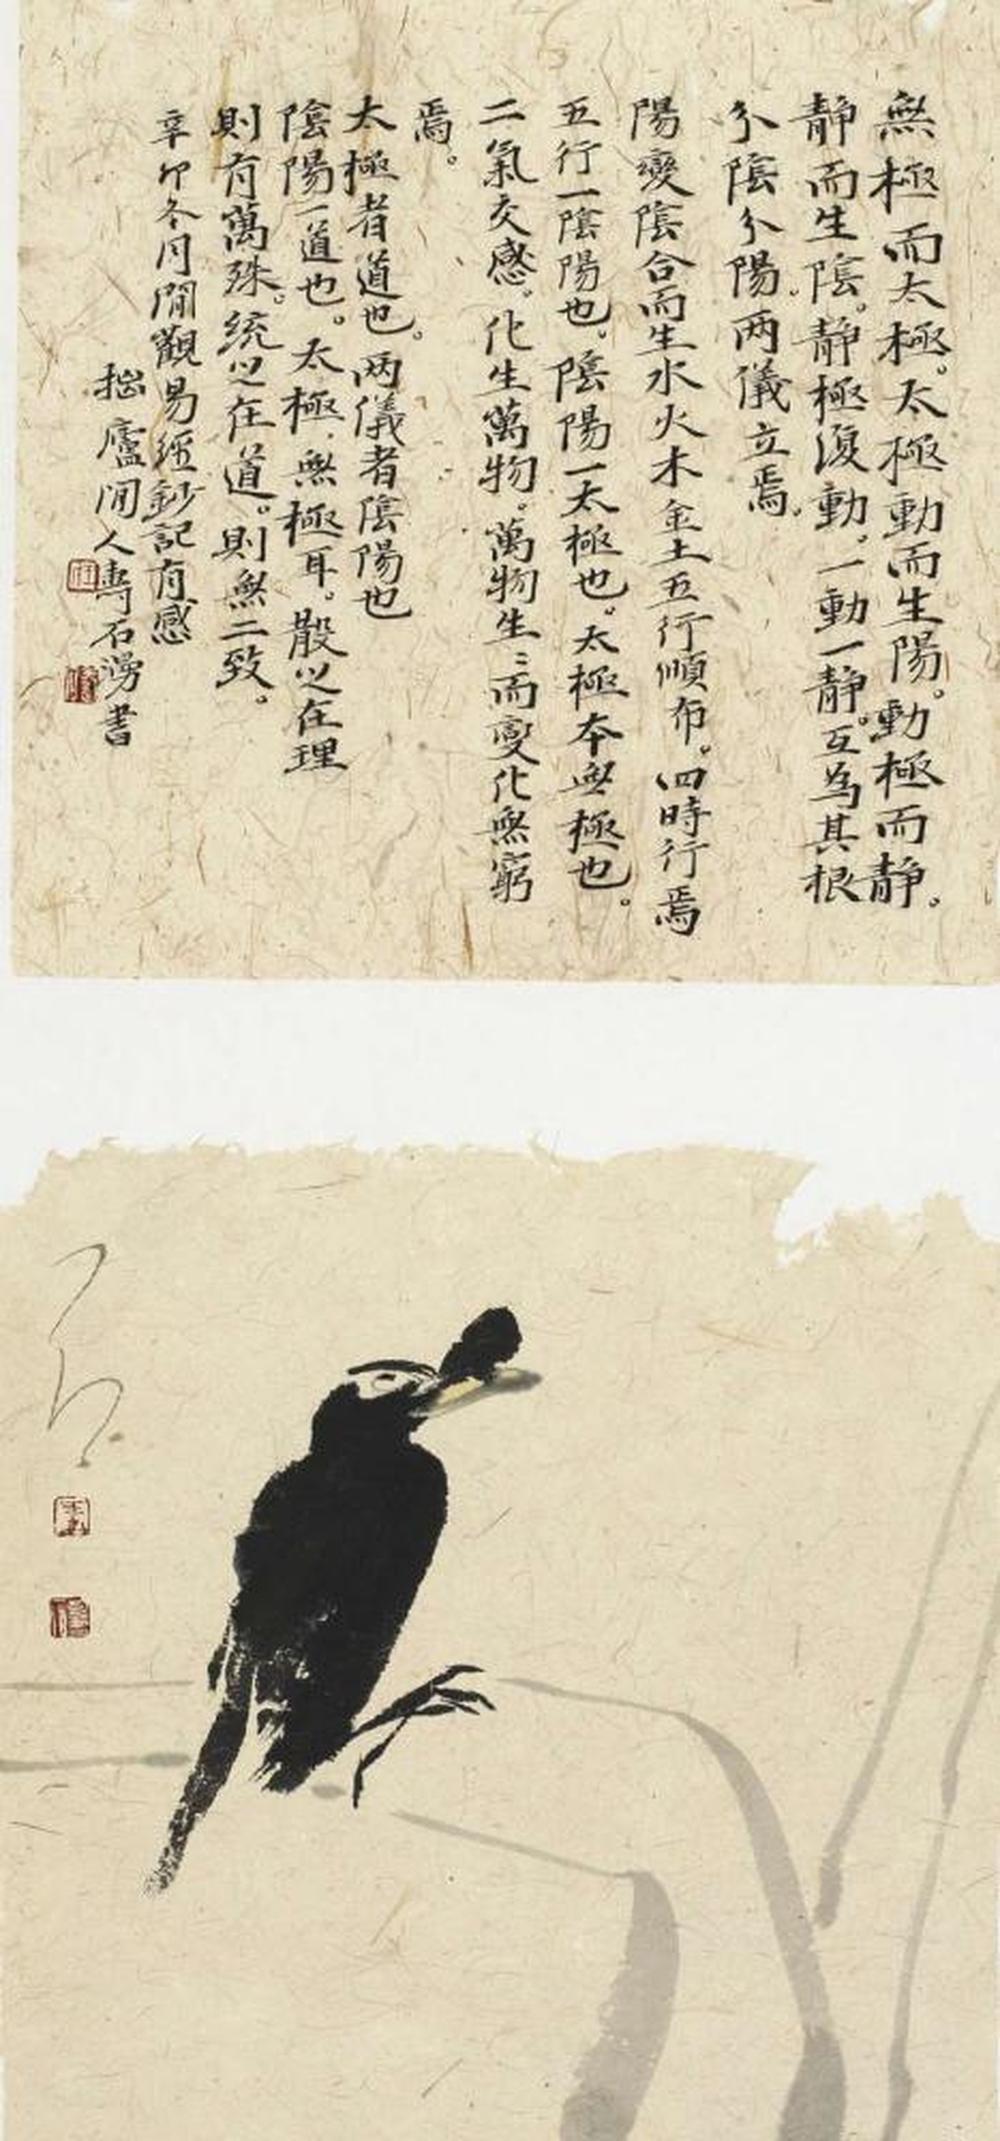 無極而太極。太極動而生陽。動極而静。
静而生陰。静極復動。一動一静。互為其根
分陰分陽。两儀立焉。
陽變陰合而生水火木金土五行順布。四時行焉
五行一陰陽也。陰陽一太極也。太極本無極也。
二氣交感。化生萬物。萬物生〻而變化無窮
焉。
太極者道也。两儀者陰陽也
陰陽一道也。太極無極耳。散之在理
則有萬殊。統之在道。則無二致。
辛卯冬月閒觀易經鈔記有感
拙廬閒人壽石湧書